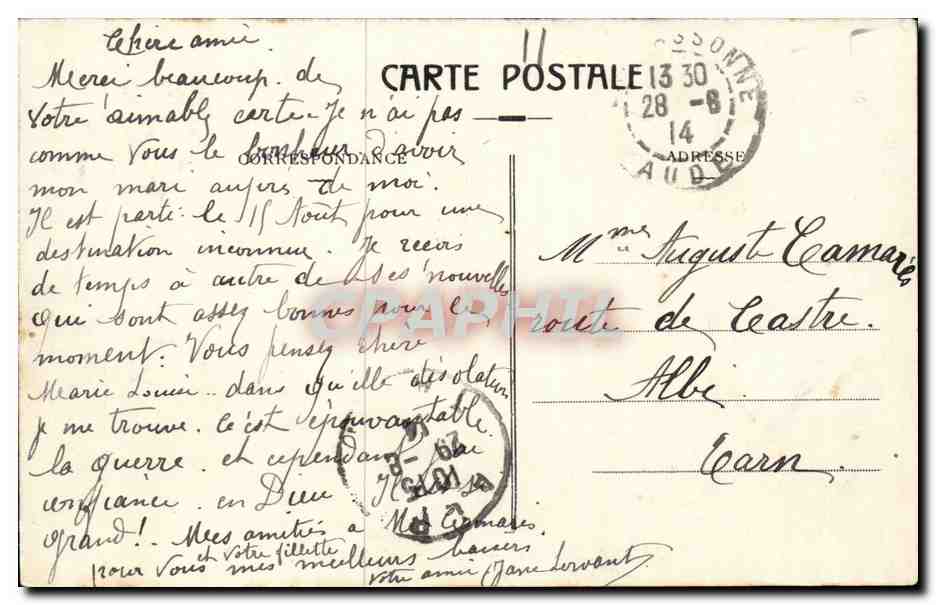 Chère amie
Merci beaucoup de
votre aimable carte. Je n'ai pas
comme vous le bonheur d'avoir
mon mari auprès de moi.
Il est parti le 15 Août pour une
destination inconnue. Je reçois
de temps à autre de ses nouvelles
qui sont assez bonnes pour le
moment. Vous pensez chère
Marie Louise dans qu'elle désolation
je me trouve. C'est épouvantable
la guerre. et cependant j'ai
confiance en Dieu. Il est si
grand! Mes amitiés à Mr Camarès
et votre fillette
pour vous mes meilleurs baisers
votre amie Jane
CARTE POSTALE
CORRESPONDANCE
ADRESSE
SSONNE
13 30
28 -8
14
AUDE
Mme Auguste Camarès
route de Castre.
Albi
Tarn.
10 15
29 -8
14
CPARHIL